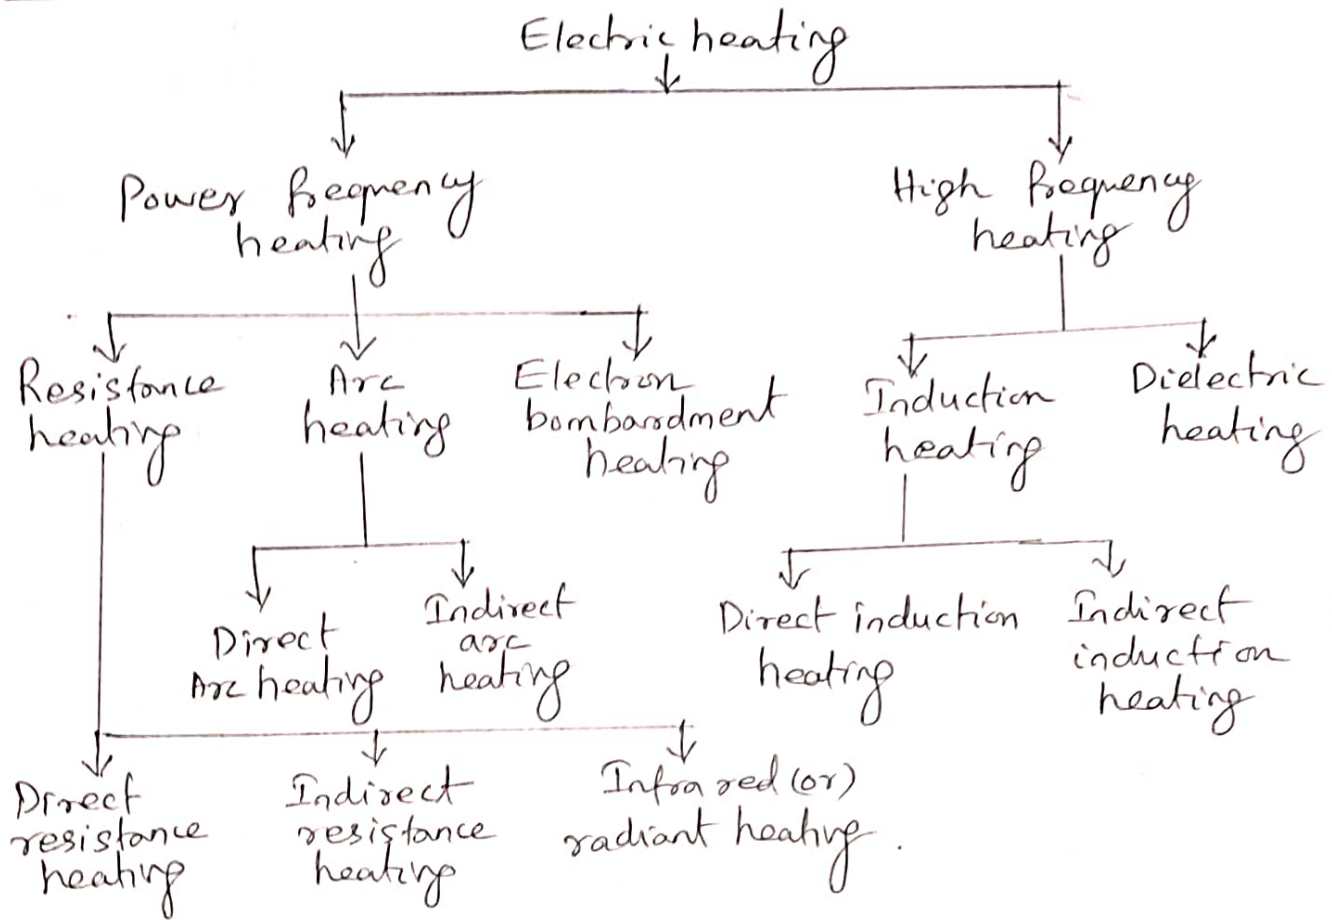 Electric heating
Power frequency
heating
High frequency
heating
Resistance
heating
Arc
heating
Electron
bombardment
heating
Induction
heating
Dielectric
heating
Direct
Arc heating
Indirect
arc
heating
Direct induction
heating
Indirect
induction
heating
Direct
resistance
heating
Indirect
resistance
heating
Infra red (or)
radiant heating.